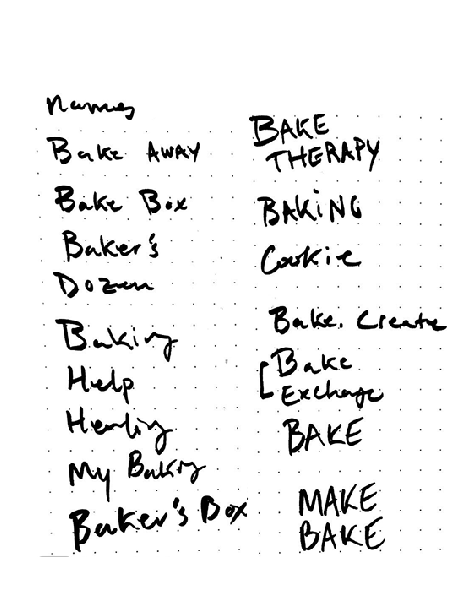 names
Bake AWAY
Bake Box
Baker's
Dozen
Baking
Help
Healing
My Baking
Baker's Box
BAKE
THERAPY
BAKiNG
Cookie
Bake. Create
Bake
Exchange
BAKE
MAKE
BAKE